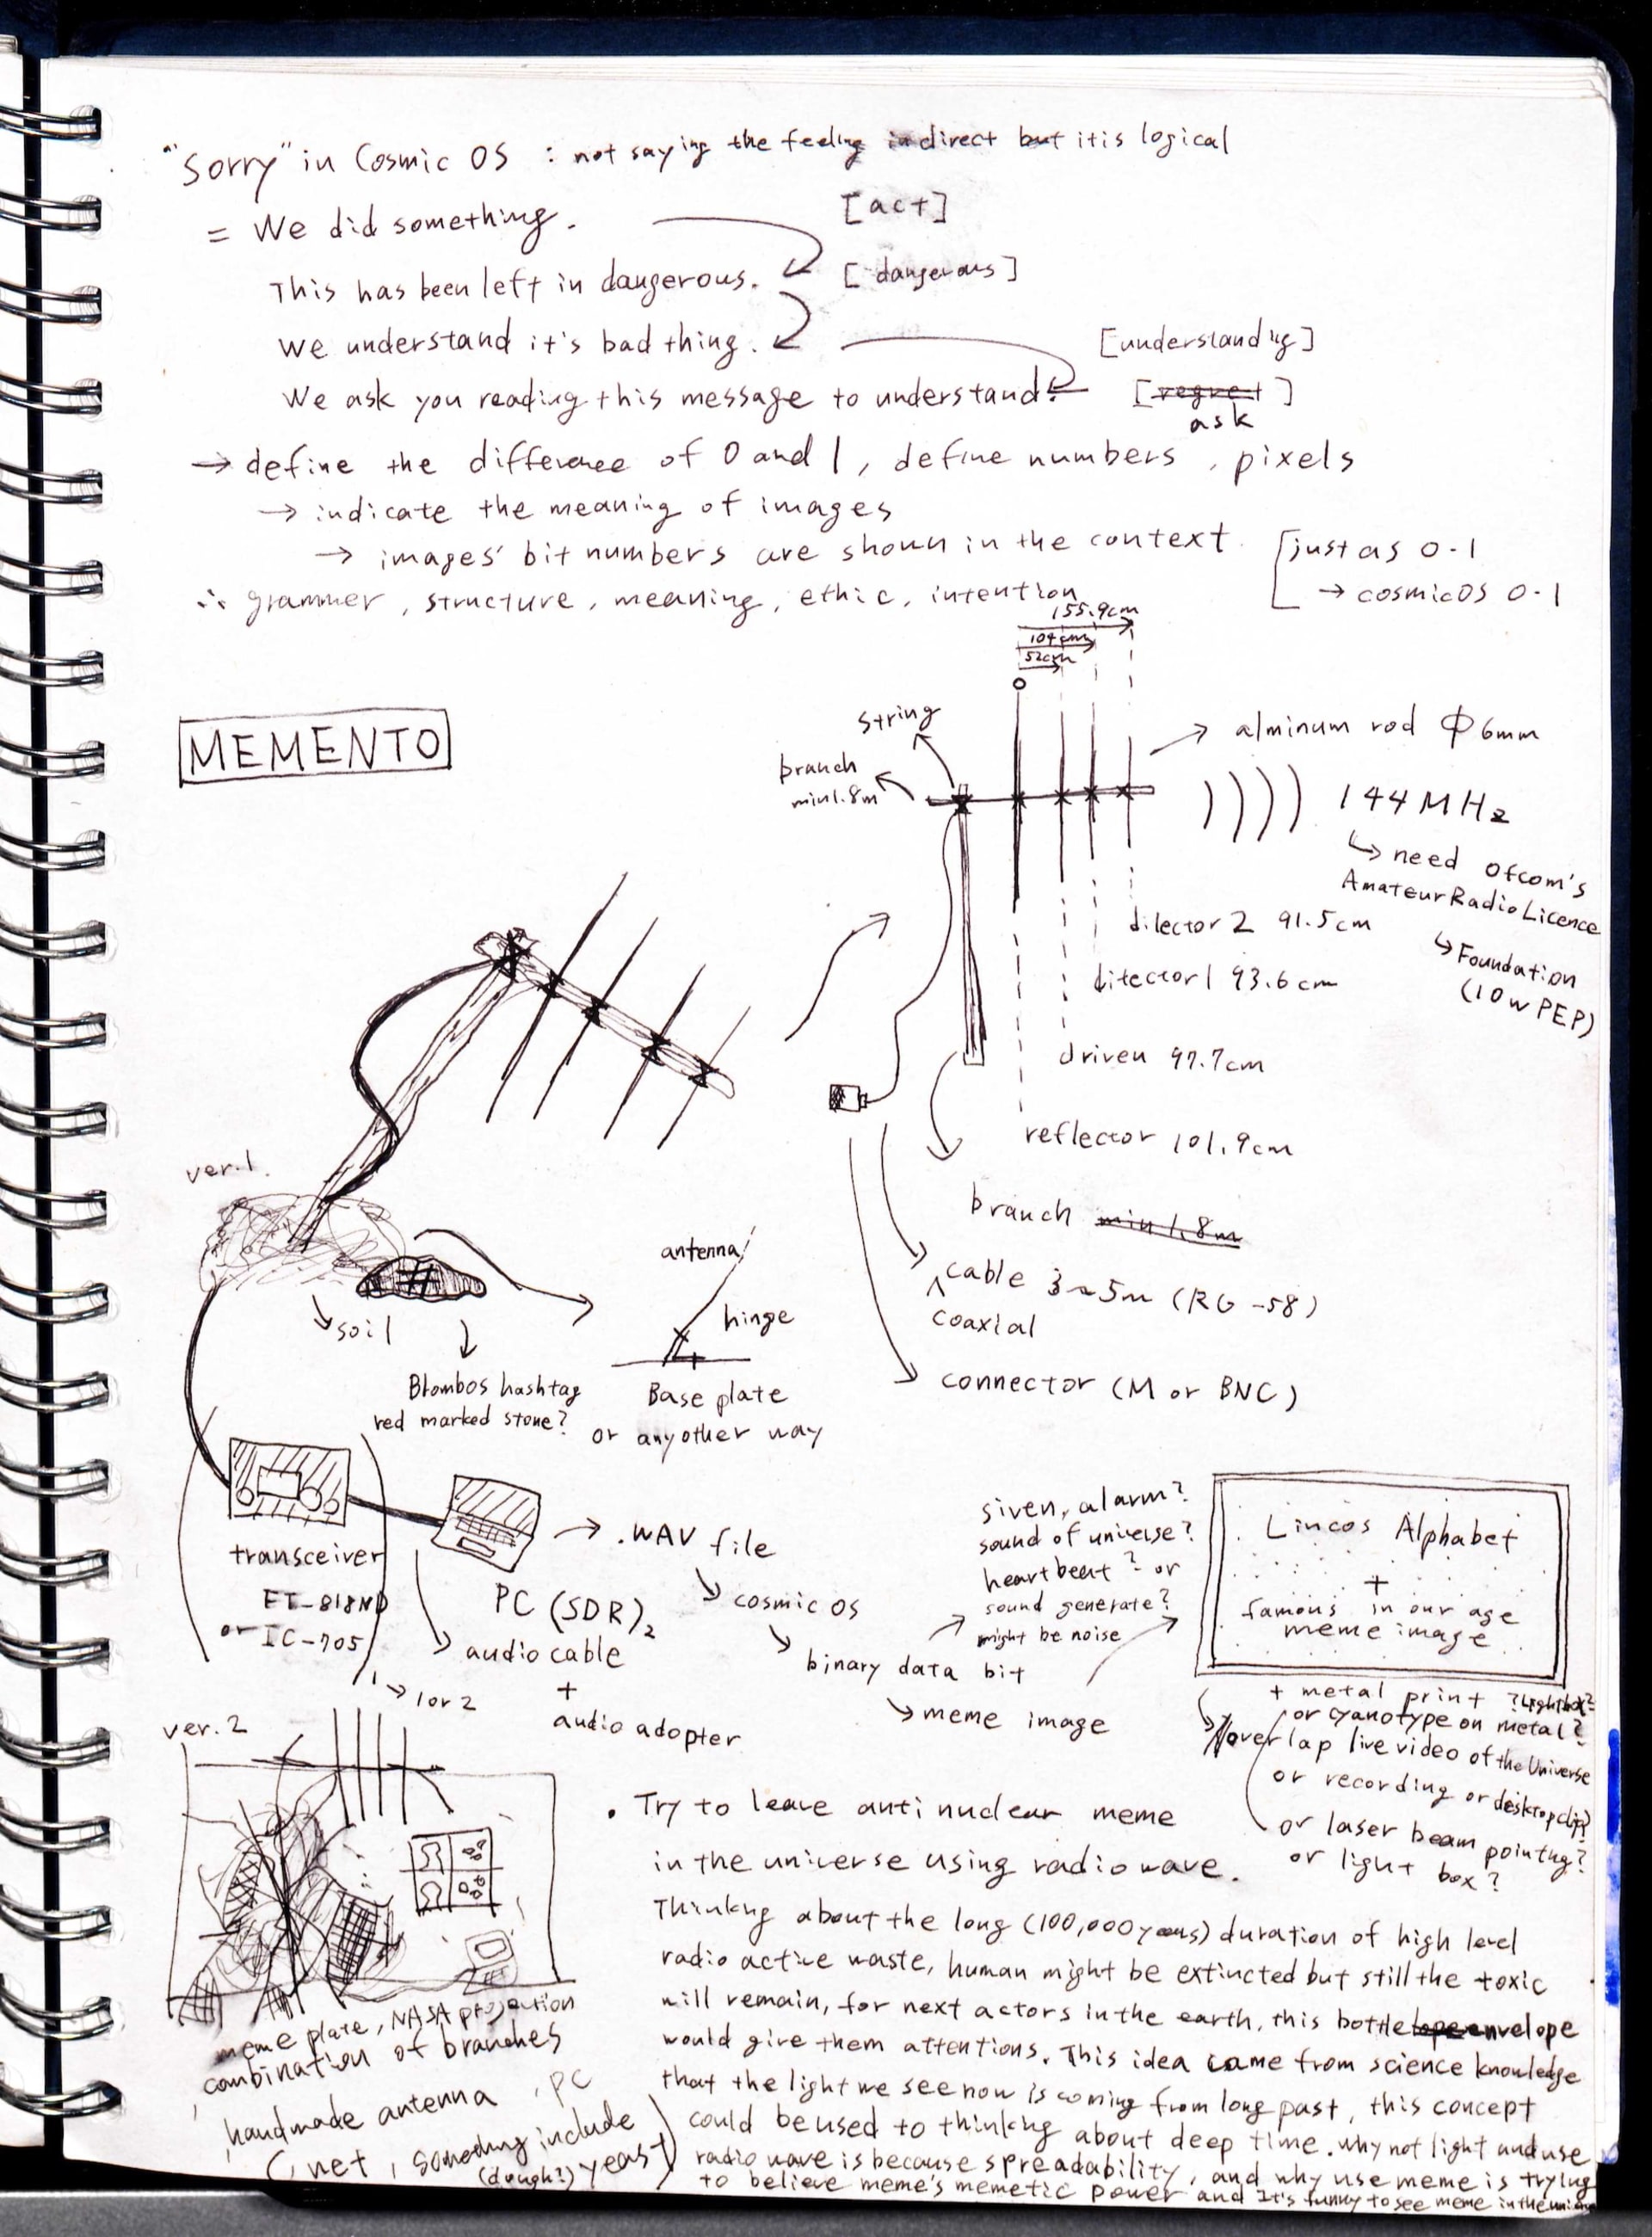 "Sorry" in Cosmic OS : not saying the feeling indirect but it is logical
= We did something. [act]
This has been left in dangerous. [dangerous]
We understand it's bad thing. [understanding]
We ask you reading this message to understand. [regret]
ask
→ define the difference of 0 and 1, define numbers, pixels
→ indicate the meaning of images
→ images' bit numbers are shown in the context.
[just as 0-1
→ cosmicOS 0-1
∴ grammer, structure, meaning, ethic, intention
155.9cm
104cm
52cm
MEMENTO
string
branch
min1.8m
alminum rod Φ6mm
144MHz
↳ need Ofcom's
Amateur Radio Licence
↳ Foundation
(10w PEP)
dilector2 91.5cm
ditector1 93.6cm
driven 97.7cm
reflector 101.9cm
branch min1.8m
cable 3~5m (RG-58)
coaxial
connector (M or BNC)
ver.1.
soil
Blombos hashtag
red marked stone?
antenna
hinge
Base plate
or anyother way
transceiver
FT-818ND
or IC-705
→ 1or2
PC (SDR)2
audio cable
+
audio adopter
→ .WAV file
cosmic OS
binary data bit
meme image
siren, alarm?
sound of universe?
heartbeat? or
sound generate?
might be noise
Lincos Alphabet
+
famous in our age
meme image
+ metal print ?Lightbox?
or cyanotype on metal?
overlap live video of the Universe
or recording or desktop clip?
or laser beam pointng?
or light box?
ver.2
meme plate, NASA projection
, combination of branches
, handmade antenna , PC
(, net, something include
(dough?) yeast)
• Try to leave anti nuclear meme
in the universe using radio wave.
Thinkng about the long (100,000years) duration of high level
radio active waste, human might be extincted but still the toxic
will remain, for next actors in the earth, this bottle envelope
would give them attentions. This idea came from science knowledge
that the light we see now is coming from long past, this concept
could be used to thinkng about deep time. why not light and use
radio wave is because spreadability, and why use meme is trying
to believe meme's memetic power and It's funny to see meme in the